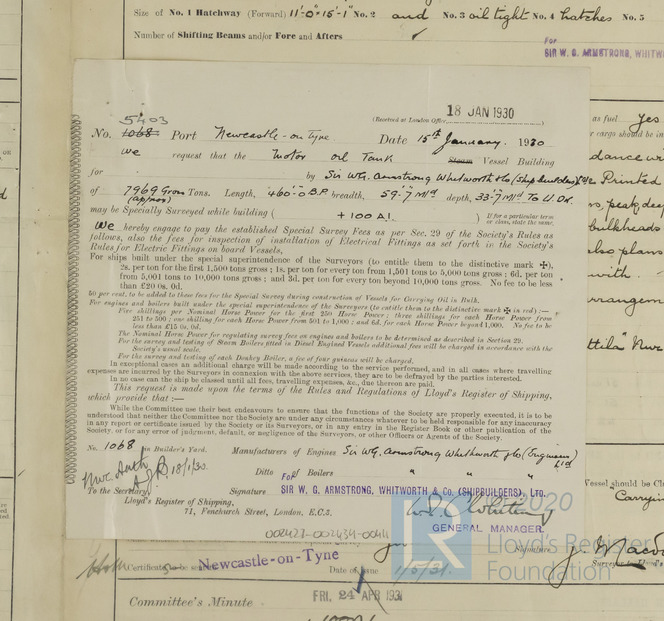 Size of No. 1 Hatchway (Forward) 11'-0" × 15'-1" No. 2 and No. 3 oil tight No. 4 hatches No. 5
Number of Shifting Beams and/or Fore and Afters
For
SIR W. G. ARMSTRONG, WHITW
(Received at London Office 18 JAN 1930)
5403
No. 1068 Port Newcastle-on-Tyne Date 15th January, 1930
We request that the Motor oil Tank Steam Vessel Building
for by Sir W.G. Armstrong Whitworth & Co (Shipbuilders) Ltd
of 7969 Gross Tons. Length, 460'-0 B.P. breadth, 59'-7 Mld depth, 33'-7 Mld To U.Dk.
(approx)
may be Specially Surveyed while building ( + 100 A1. ) If for a particular term or class, state the same.
We hereby engage to pay the established Special Survey Fees as per Sec. 29 of the Society's Rules as
follows, also the fees for inspection of installation of Electrical Fittings as set forth in the Society's
Rules for Electric Fittings on board Vessels,
For ships built under the special superintendence of the Surveyors (to entitle them to the distinctive mark ✠),
2s. per ton for the first 1,500 tons gross; 1s. per ton for every ton from 1,501 tons to 5,000 tons gross; 6d. per ton
from 5,001 tons to 10,000 tons gross; and 3d. per ton for every ton beyond 10,000 tons gross. No fee to be less
than £20 0s. 0d.
50 per cent. to be added to these fees for the Special Survey during construction of Vessels for Carrying Oil in Bulk.
For engines and boilers built under the special superintendence of the Surveyors (to entitle them to the distinctive mark ✠ in red):—
Five shillings per Nominal Horse Power for the first 250 Horse Power; three shillings for each Horse Power from
251 to 500; one shilling for each Horse Power from 501 to 1,000; and 6d. for each Horse Power beyond 1,000. No fee to be
less than £15 0s. 0d.
The Nominal Horse Power for regulating survey fees on engines and boilers to be determined as described in Section 29.
For the survey and testing of Steam Boilers fitted in Diesel Engined Vessels additional fees will be charged in accordance with the
Society's usual scale.
For the survey and testing of each Donkey Boiler, a fee of four guineas will be charged.
In exceptional cases an additional charge will be made according to the service performed, and in all cases where travelling
expenses are incurred by the Surveyors in connexion with the above services, they are to be defrayed by the parties interested.
In no case can the ship be classed until all fees, travelling expenses, &c., due thereon are paid.
This request is made upon the terms of the Rules and Regulations of Lloyd's Register of Shipping,
which provide that :—
While the Committee use their best endeavours to ensure that the functions of the Society are properly executed, it is to be
understood that neither the Committee nor the Society are under any circumstances whatever to be held responsible for any inaccuracy
in any report or certificate issued by the Society or its Surveyors, or in any entry in the Register Book or other publication of the
Society, or for any error of judgment, default, or negligence of the Surveyors, or other Officers or Agents of the Society.
No. 1068 in Builder's Yard. Manufacturers of Engines Sir W.G. Armstrong Whitworth & Co (Engineers) Ltd
Ditto of Boilers " " "
18/1/30.
To the Secretary Signature FOR SIR W. G. ARMSTRONG, WHITWORTH & Co. (SHIPBUILDERS), LTD.
Lloyd's Register of Shipping,
71, Fenchurch Street, London, E.C.3.
GENERAL MANAGER.
002427-002434-0044
as fuel Yes
r cargo should be in
dance wi
e Printed
s, peak, deep
bulkheads
also plans
with.
rrangem
ttila" Nwc
Vessel should be Cl
"Carryin
© 2020
Lloyd's Register
Foundation
Certificate to be sent Newcastle-on-Tyne Date of issue 1/5/31. Signature
Surveyor to Lloyd's
Committee's Minute FRI. 24 APR 1931